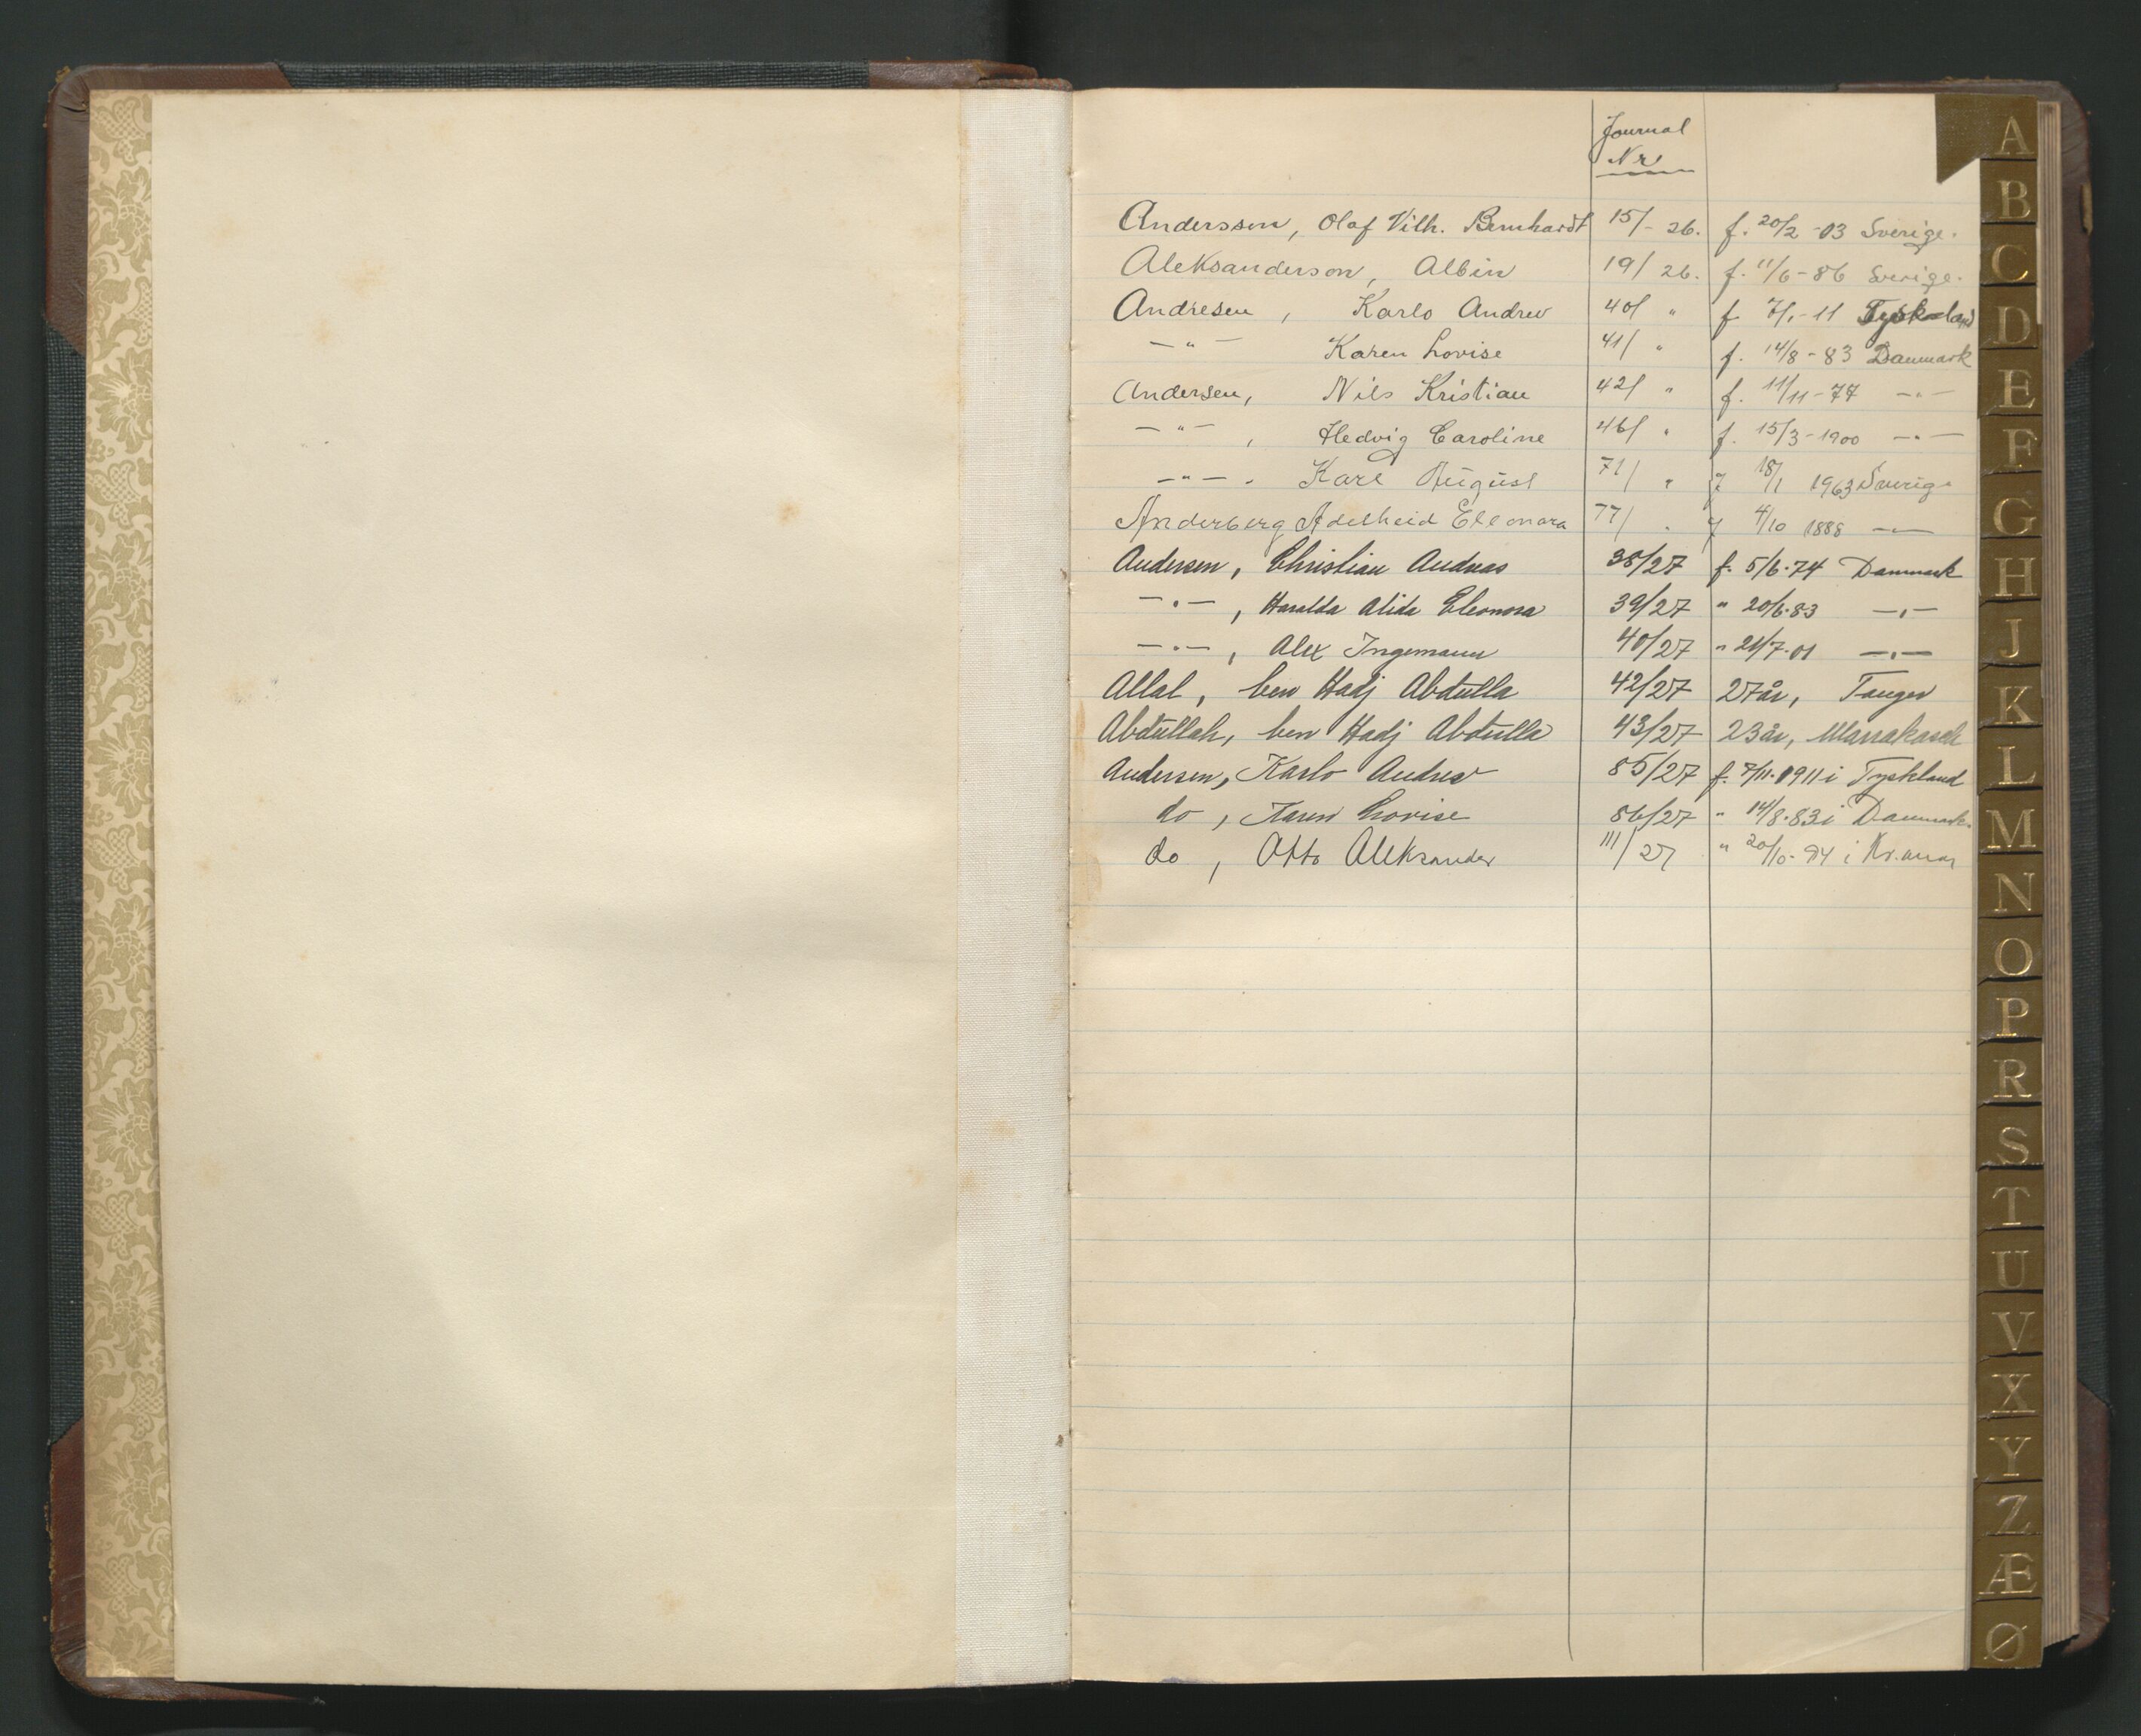 Journal
Nr
Anderssen, Olaf Vilh. Bernhardt 15/- 26. f. 20/2 -03 Sverige.
Aleksanderson, Albin 19/ 26. f. 11/6 - 86 Sverige.
Andresen, Karlo Andrew 40/ " f 7/1 - 11 Tyskland
— " — Karen Lovise 41/ " f. 14/8 - 83 Danmark
Andersen, Nils Kristian 42/ " f. 11/11 - 77 — " —
— " — , Hedvig Caroline 46/ " f. 15/3 - 1900 — " —
— " — . Karl August 71/ " f 18/1 1963 Sverige
Anderberg Adelheid Eleonora 77/ " f 4/10 1888 — " —
Andersen, Christian Andreas 38/27 f. 5/6.74 Danmark
— " — , Haralda Alida Eleonora 39/27 " 20/6.83 — " —
— " — , Alex Ingemann 40/27 " 21/7.01 — " —
Allal, ben Hadj Abdulla 42/27 27 år, Tanger
Abdullah, ben Hadj Abdulla 43/27 23 år, Marrakasch
Andersen, Karlo Andrew 85/27 f. 7/11.1911 i Tyskland
do, Karen Lovise 86/27 " 14/8.83 i Danmark.
do, Otto Aleksander 111/27 " 20/10-94 i
A
B
C
D
E
F
G
H
J
K
L
M
N
O
P
R
S
T
U
V
X
Y
Z
Æ
Ø